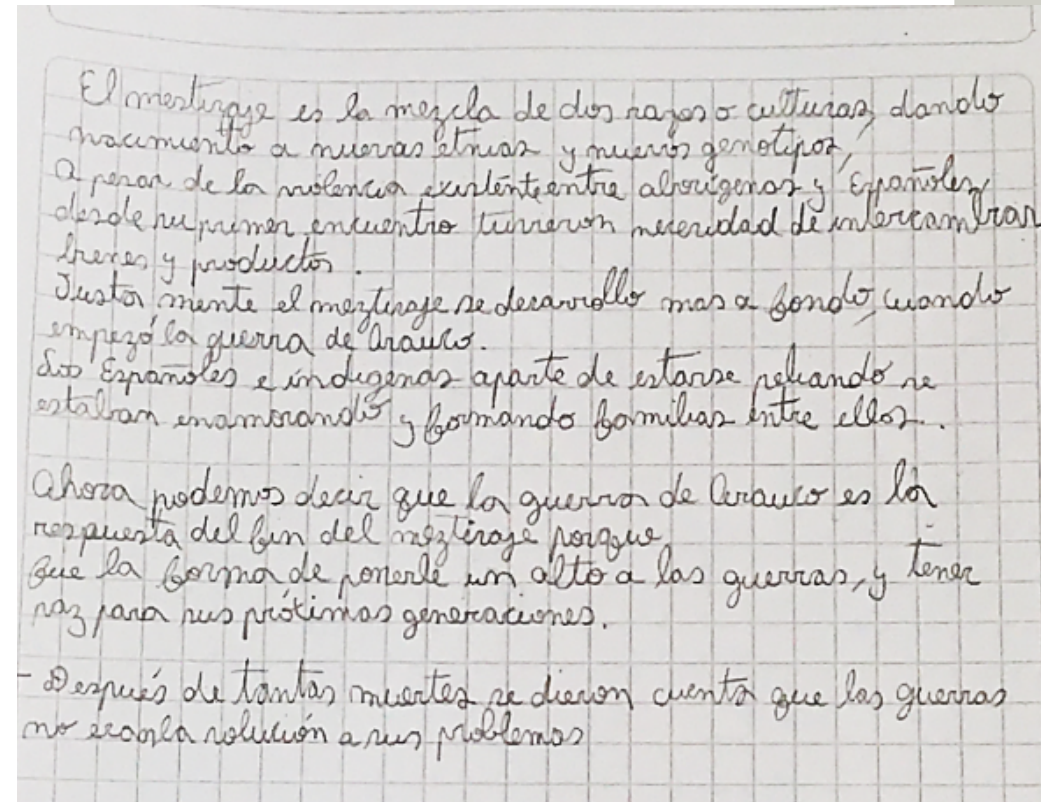 El mestizaje es la mezcla de dos razas o culturas, dando
nacimiento a nuevas etnias y nuevos genotipos,
A pesar de la violencia existente entre aborígenas y Españoles,
desde su primer encuentro tuvieron necesidad de intercambiar
bienes y productos.
Justa mente el meztizaje se desarrollo mas a fondo, cuando
empezó la guerra de Arauco.
Los Españoles e indígenas aparte de estarse peliando se
estaban enamorando y formando familias entre ellos.
Ahora podemos decir que la guerra de Arauco es la
respuesta del fin del meztizaje porque
fue la forma de ponerle un alto a las guerras, y tener
paz para sus prótimas generaciones.
- Después de tantas muertes se dieron cuenta que las guerras
no eran la solución a sus problemas